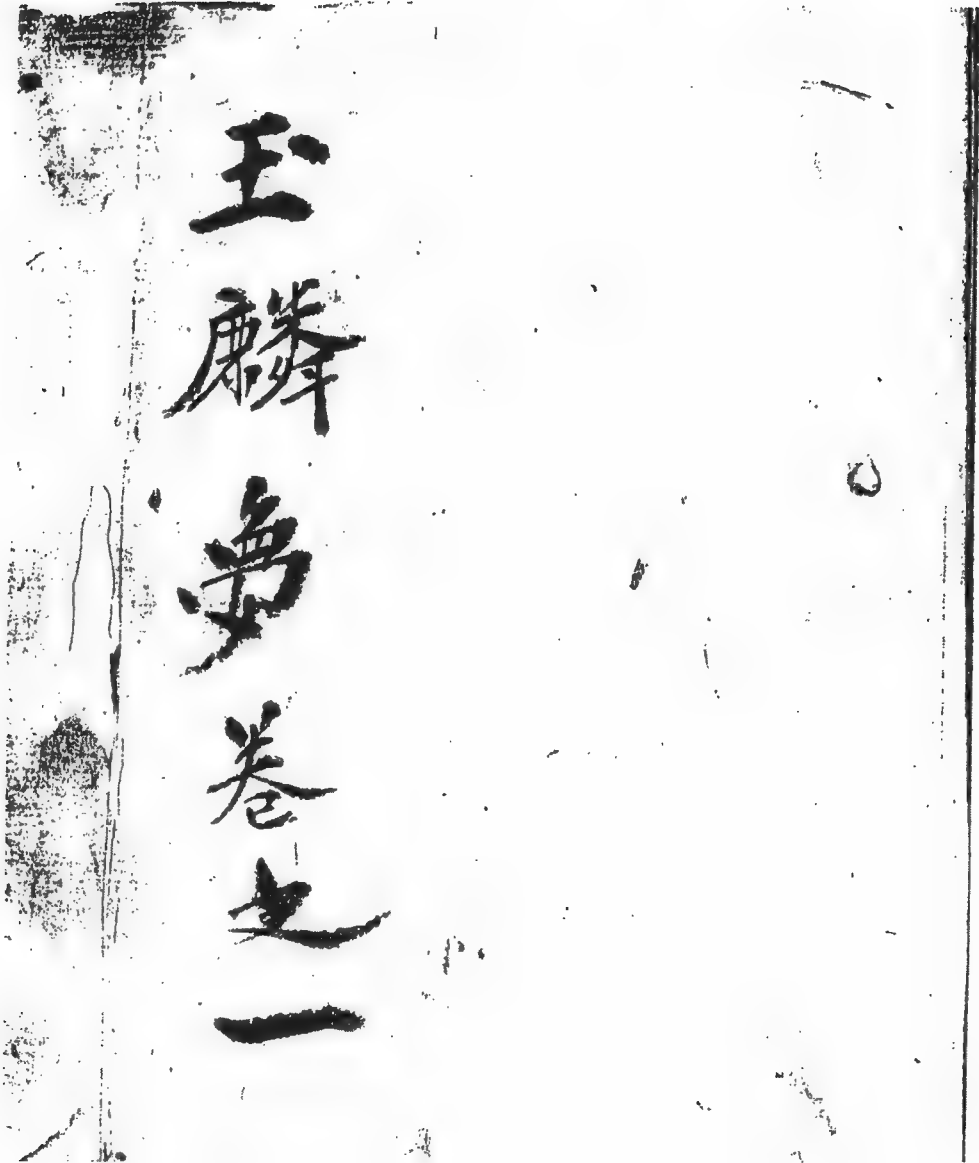 玉麟夢卷之一